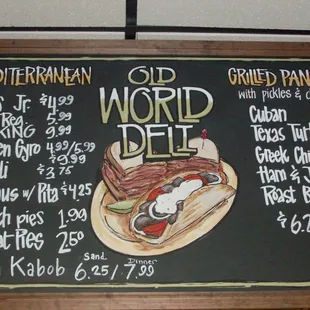 DITERRANEAN
s Jr. $4.99
Reg. 5.99
KING 9.99
en Gyro 4.99/5.99
$9.99
li $3.75
us w/ Pita $4.25
ch pies 1.99
at Pies 2.50
Kabob Sand. 6.25 / Dinner 7.99
OLD
WORLD
DELI
GRILLED PAN
with pickles & c
Cuban
Texas Tur
Greek Chi
Ham & J
Roast B
$6.2